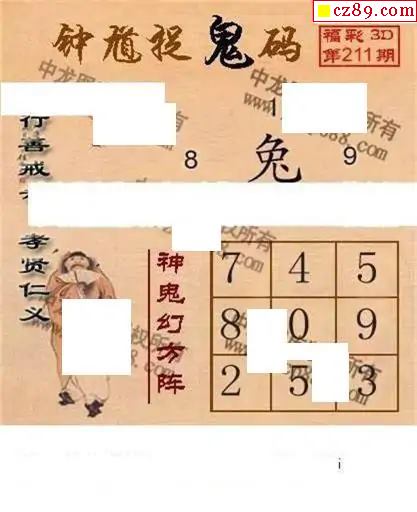 cz89.com
钟馗捉鬼码
福彩3D
第211期
行善戒
孝贤仁义
8
兔
9
神鬼幻方阵
7 4 5
8 0 9
2 5 3
i